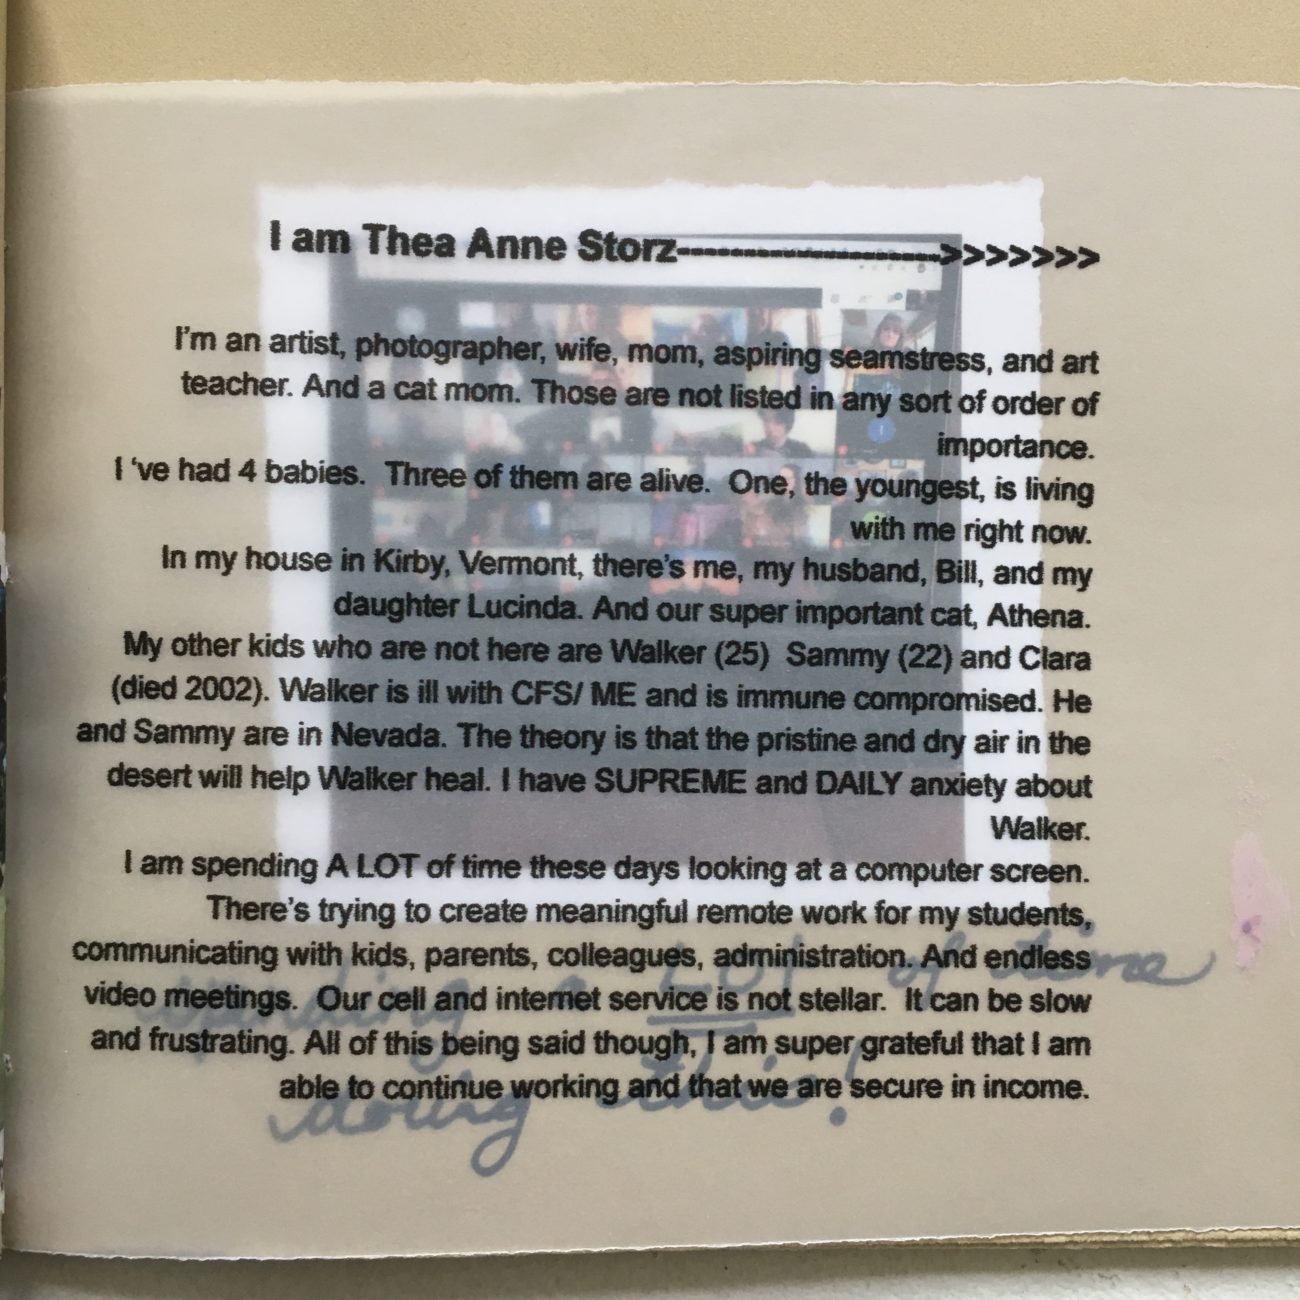 I am Thea Anne Storz-------------------->>>>>>>
I'm an artist, photographer, wife, mom, aspiring seamstress, and art
teacher. And a cat mom. Those are not listed in any sort of order of
importance.
I 've had 4 babies.  Three of them are alive.  One, the youngest, is living
with me right now.
In my house in Kirby, Vermont, there's me, my husband, Bill, and my
daughter Lucinda. And our super important cat, Athena.
My other kids who are not here are Walker (25)  Sammy (22) and Clara
(died 2002). Walker is ill with CFS/ ME and is immune compromised. He
and Sammy are in Nevada. The theory is that the pristine and dry air in the
desert will help Walker heal. I have SUPREME and DAILY anxiety about
Walker.
I am spending A LOT of time these days looking at a computer screen.
There's trying to create meaningful remote work for my students,
communicating with kids, parents, colleagues, administration. And endless
video meetings.  Our cell and internet service is not stellar.  It can be slow
and frustrating. All of this being said though, I am super grateful that I am
able to continue working and that we are secure in income.
spending a LOT of time
doing this!